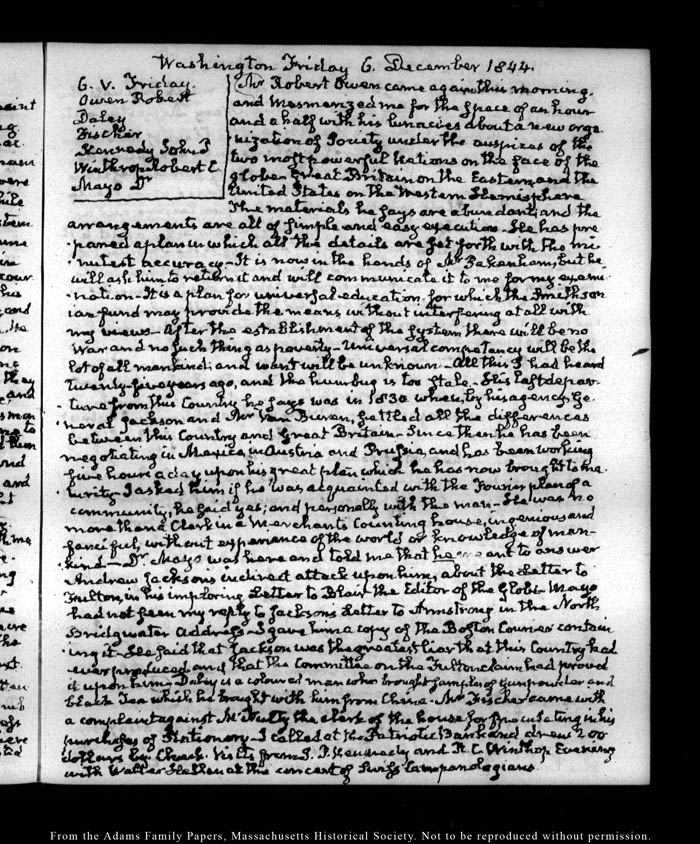 Washington Friday 6. December 1844.
6. V. Friday.
Owen Robert
Daley
Fischer
Kennedy John P
Winthrop Robert C.
Mayo Dr
Mr Robert Owen came again this morning,
and Mesmerized me for the space of an hour
and a half with his lunacies about a new orga-
nization of Society under the auspices of the
two most powerful Nations on the face of the
globe, Great Britain on the Eastern, and the
United States on the Western Hemisphere
The materials he says are abundant, and the
arrangements are all of simple and easy execution. He has pre-
pared a plan in which all the details are set forth with the mi-
nutest accuracy. It is now in the hands of Mr Pakenham, but he
will ask him to return it and will communicate it to me for my exami-
nation. It is a plan for universal education, for which the Smithson
ian fund may provide the means, without interfering at all with
my views. After the establishment of the system there will be no
War and no such thing as poverty. Universal competency will be the
lot of all mankind; and want will be unknown. All this I had heard
twenty-five years ago, and the humbug is too stale. His last depar-
ture from this Country he says was in 1830 when, by his agency, Ge-
neral Jackson and Mr Van Buren, settled all the differences
between this Country and Great Britain. Since then he has been
negotiating in Mexico, in Austria and Prussia, and has been working
five hours a day upon his great plan which he has now brought to ma-
turity. I asked him if he was acquainted with the Fourier plan of a
community, he said yes; and personally with the man. He was no
more than a Clerk in a Merchants Counting house, ingenious and
fanciful, without experience of the world or knowledge of man-
kind. Dr Mayo was here and told me that he meant to answer
Andrew Jacksons indirect attack upon him, about the Letter to
Fulton, in his imploring Letter to Blair the Editor of the Globe. Mayo
had not seen my reply to Jackson's Letter to Armstrong in the North
Bridgwater Address. I gave him a copy of the Boston Courier contain
ing it. He said that Jackson was the greatest liar that this Country had
ever produced and that the Committee on the Fulton claim had proved
it upon him. Daley is a coloured man who brought samples of Gunpowder and
black Tea which he brought with him from China. Mr Fischer came with
a complaint against McNulty the clerk of the house for peculating in his
purchases of Stationary. I called at the Patriotic Bank and drew 200
dollars by Check. Visits from J. P. Kennedy and R. C. Winthrop. Evening
with Walter Hellen at the concert of Swiss Campanologians
From the Adams Family Papers, Massachusetts Historical Society. Not to be reproduced without permission.